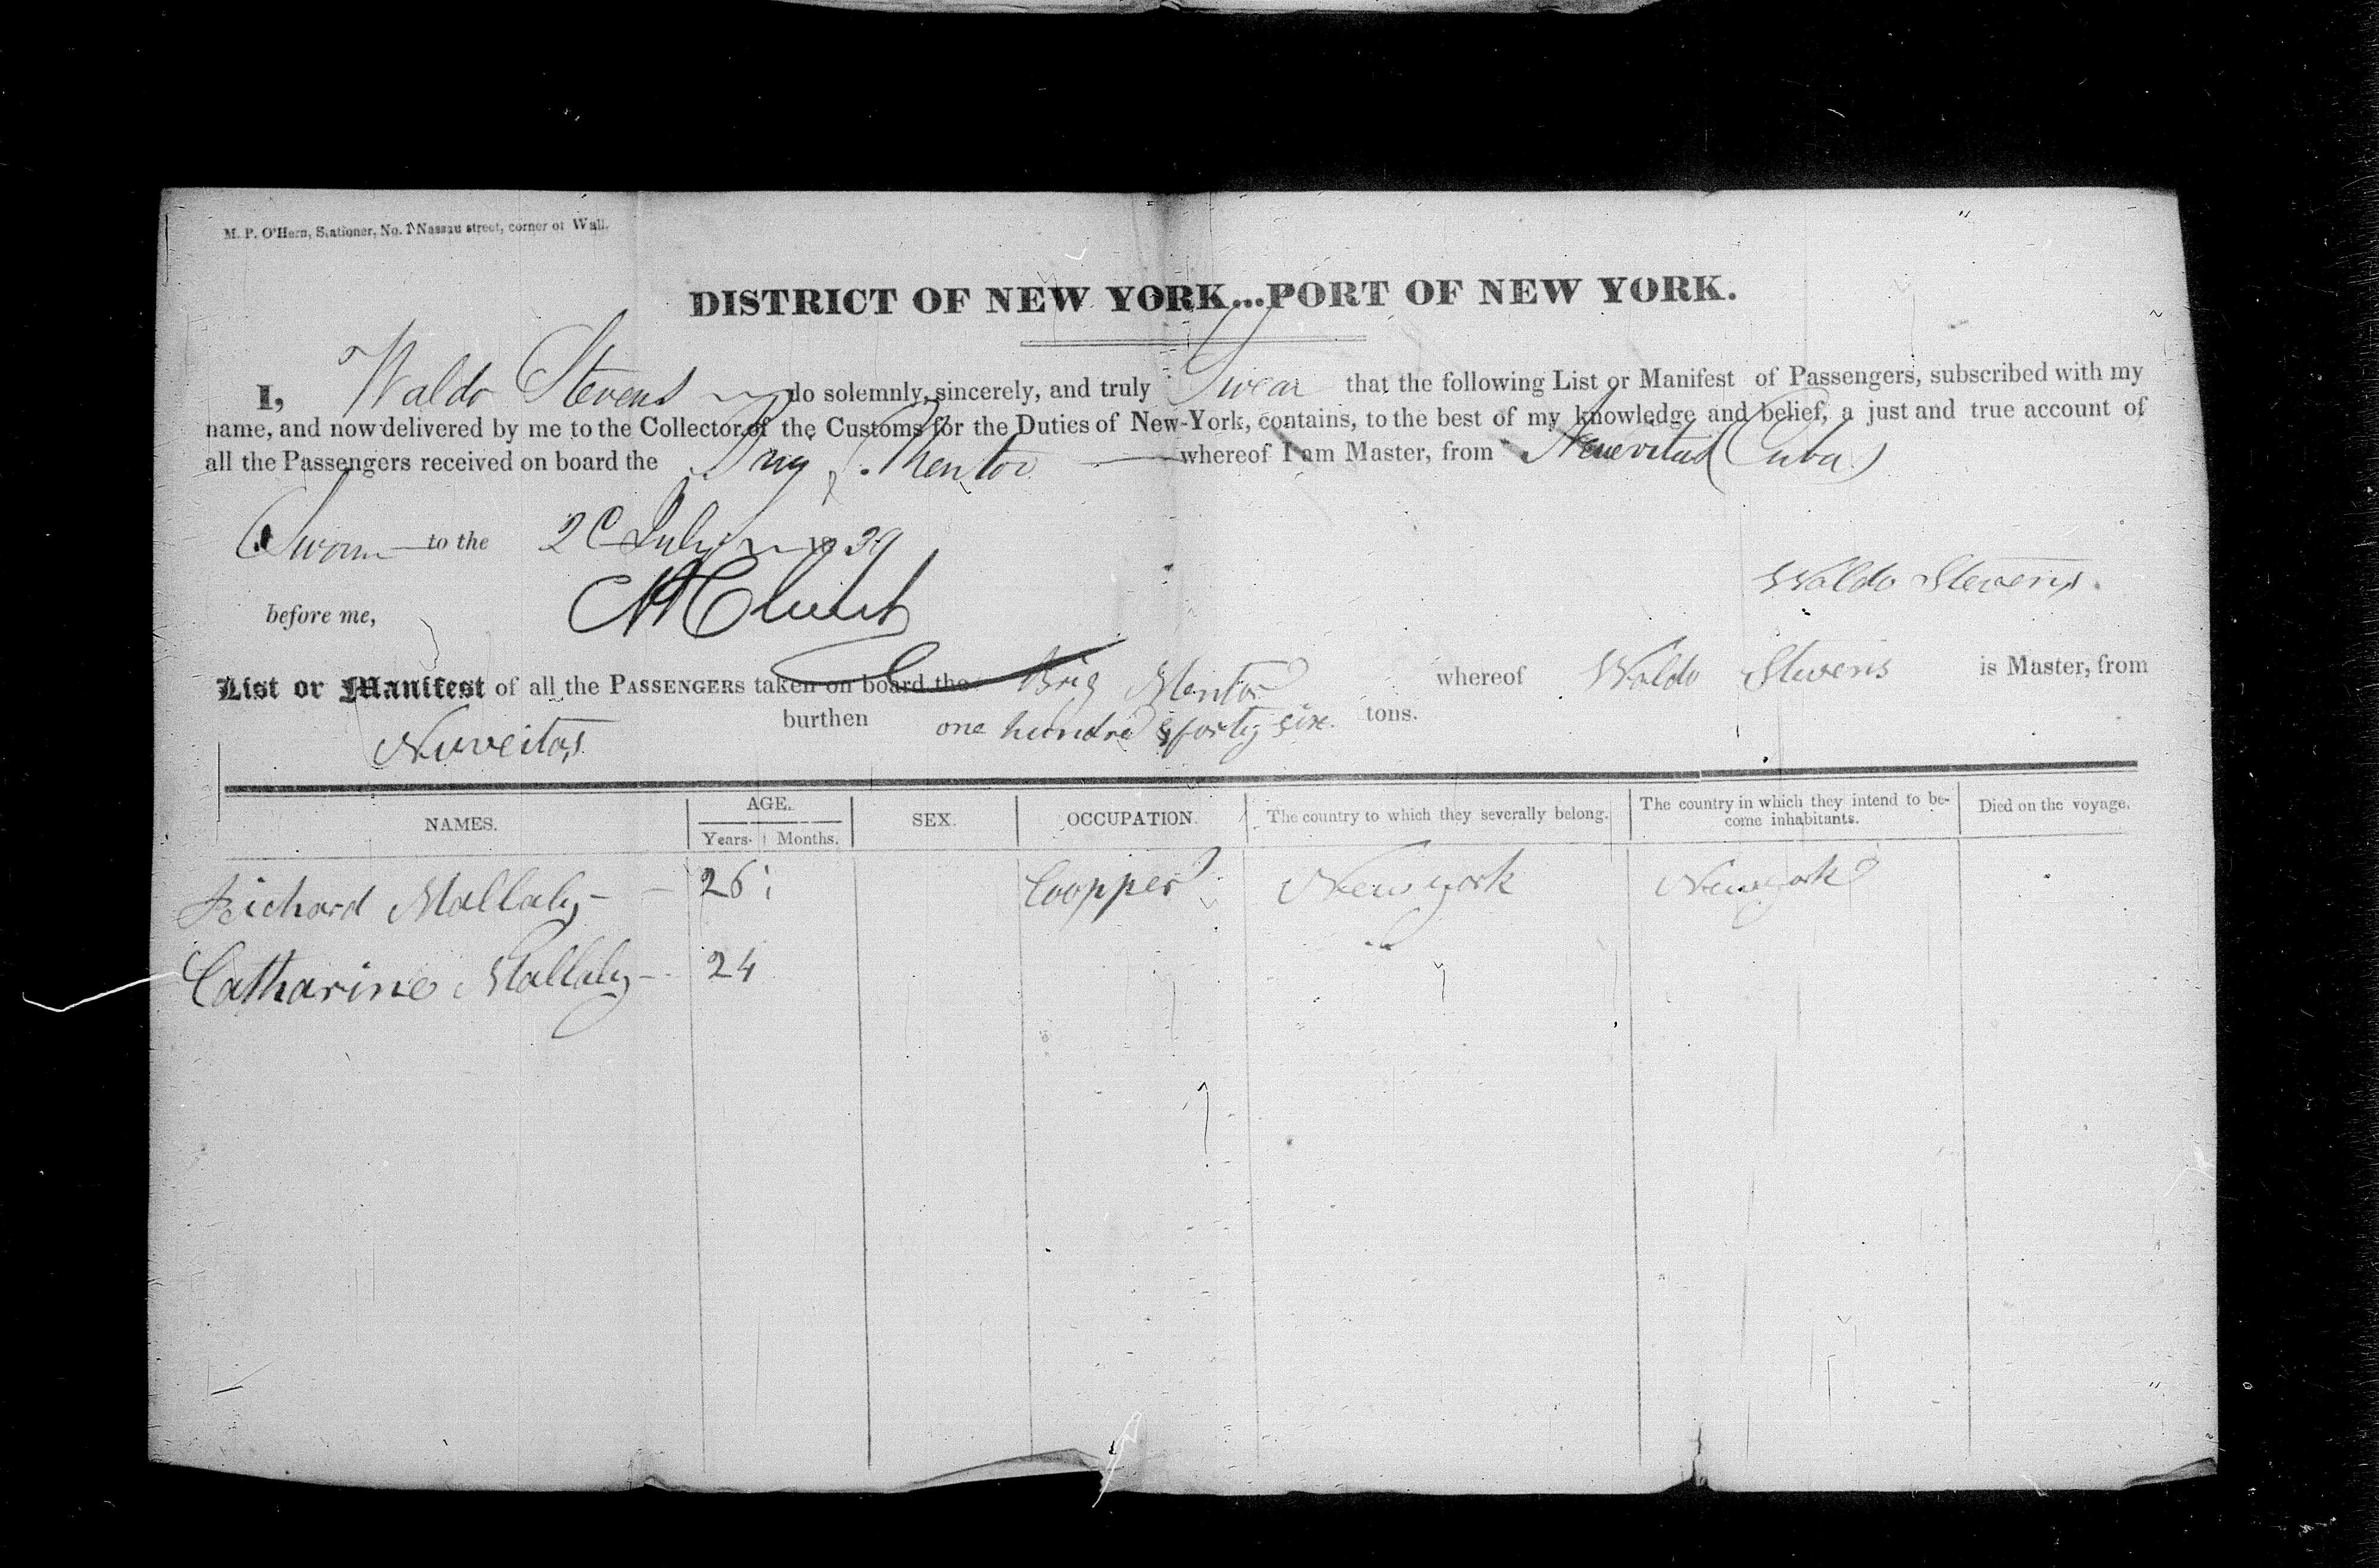 M. P. O'Hern, Stationer, No. 1 Nassau street, corner of Wall.
DISTRICT OF NEW YORK...PORT OF NEW YORK.
I, Waldo Stevens do solemnly, sincerely, and truly Swear that the following List or Manifest of Passengers, subscribed with my
name, and now delivered by me to the Collector of the Customs for the Duties of New-York, contains, to the best of my knowledge and belief, a just and true account of
all the Passengers received on board the Brig Mentor whereof I am Master, from Neuvitas (Cuba)
Sworn to the July 1839
Waldo Stevens.
before me,
List or Manifest of all the PASSENGERS taken on board the Brig Mentor whereof Waldo Stevens is Master, from
Nuveitas burthen one hundred & forty six tons.
NAMES. AGE. SEX. OCCUPATION. The country to which they severally belong. The country in which they intend to be-come inhabitants. Died on the voyage.
Years. Months.
Richard Mallaly 26 Coopper New york New york
Catharine Mallaly 24